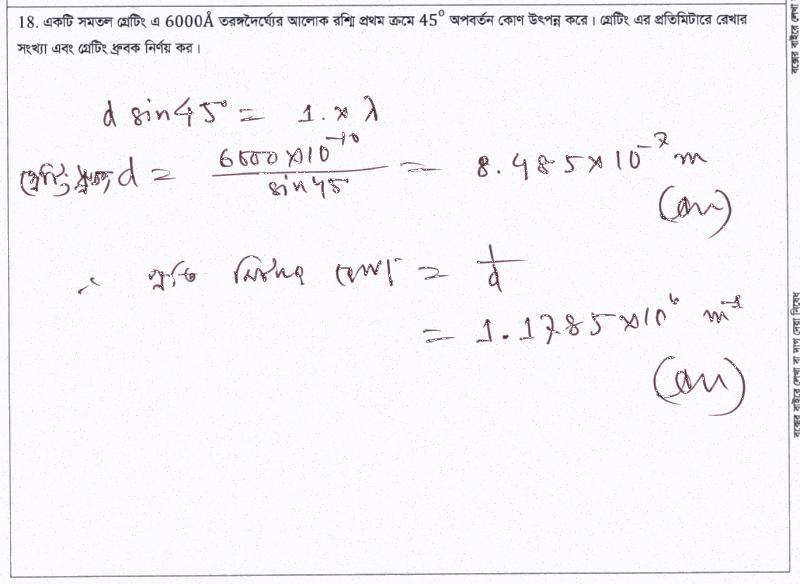 18. একটি সমতল গ্রেটিং এ 6000Å তরঙ্গদৈর্ঘ্যের আলোক রশ্মি প্রথম ক্রমে 45° অপবর্তন কোণ উৎপন্ন করে। গ্রেটিং এর প্রতিমিটারে রেখার
সংখ্যা এবং গ্রেটিং ধ্রুবক নির্ণয় কর।
d sin45° = 1. × λ
গ্রেটিং ধ্রুবক, d = 6000×10⁻¹⁰ / sin 45° = 8.485×10⁻⁷ m
(Ans)
∴ প্রতি মিটারে রেখা = 1/d
= 1.1785×10⁶ m⁻¹
(Ans)
বক্সের বাইরে লেখা বা দাগ দেয়া নিষেধ